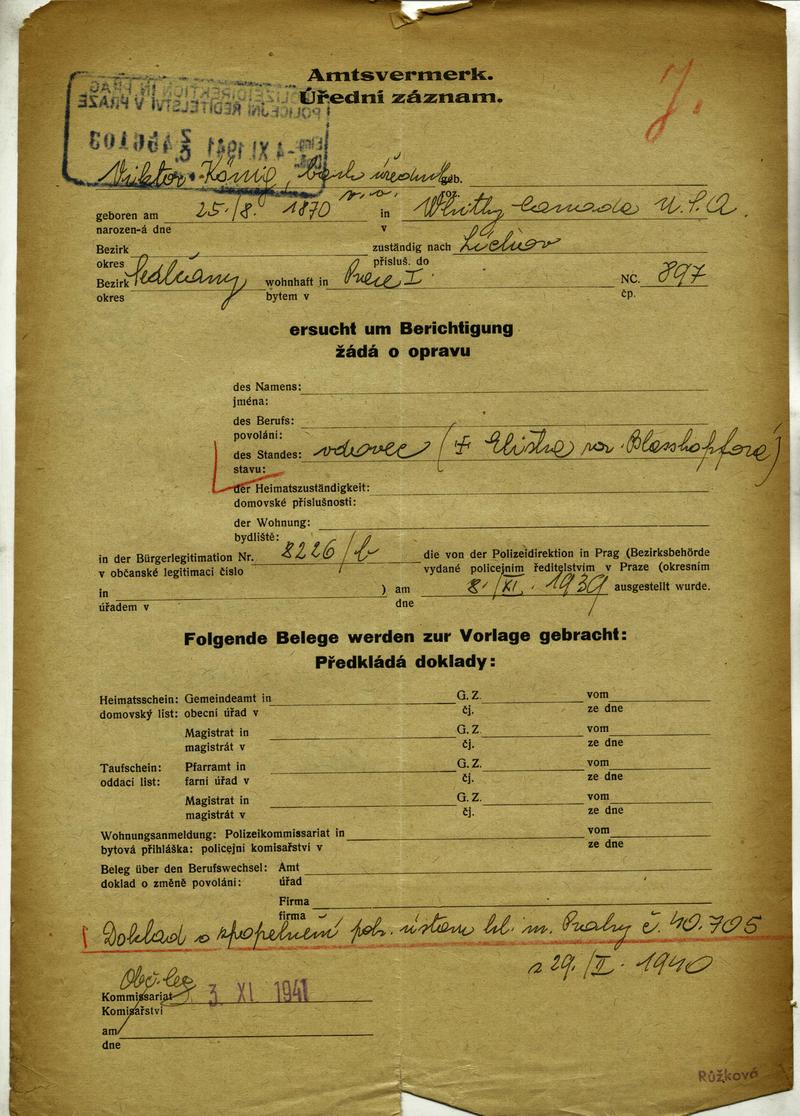 Amtsvermerk.
Úřední záznam.
J.
POLIZEIDIREKTION IN PRAG
POLICEJNÍ ŘEDITELSTVÍ V PRAZE
-4 XI 1941
Viktor König, bank. úředník geb.
v. v. roz.
geboren am 25./8. 1870 in Whitby Canada U.S.A.
narozen-á dne v
Bezirk zuständig nach Líchov
okres přísluš. do
Bezirk Sedlčany wohnhaft in Praze I NC. 897
okres bytem v čp.
ersucht um Berichtigung
žádá o opravu
des Namens:
jména:
des Berufs:
povolání:
des Standes: vdovec (+ Eliška roz.
stavu:
der Heimatszuständigkeit:
domovské příslušnosti:
der Wohnung:
bydliště:
in der Bürgerlegitimation Nr. 8226/b die von der Polizeidirektion in Prag (Bezirksbehörde
v občanské legitimaci číslo vydané policejním ředitelstvím v Praze (okresním
in ) am 8./XI. 1939 ausgestellt wurde.
úřadem v dne
Folgende Belege werden zur Vorlage gebracht:
Předkládá doklady:
Heimatsschein: Gemeindeamt in G. Z. vom
domovský list: obecní úřad v čj. ze dne
Magistrat in G. Z. vom
magistrát v čj. ze dne
Taufschein: Pfarramt in G. Z. vom
oddací list: farní úřad v čj. ze dne
Magistrat in G. Z. vom
magistrát v čj. ze dne
Wohnungsanmeldung: Polizeikommissariat in vom
bytová přihláška: policejní komisařství v ze dne
Beleg über den Berufswechsel: Amt
doklad o změně povolání: úřad
Firma
firma
Doklad o zpopelnění poh. ústavu hl. m. Prahy č. 40.705
z 29./II. 1940
Obč. leg
Kommissariat 3 XI 1941
Komisařství
am
dne
Růžková